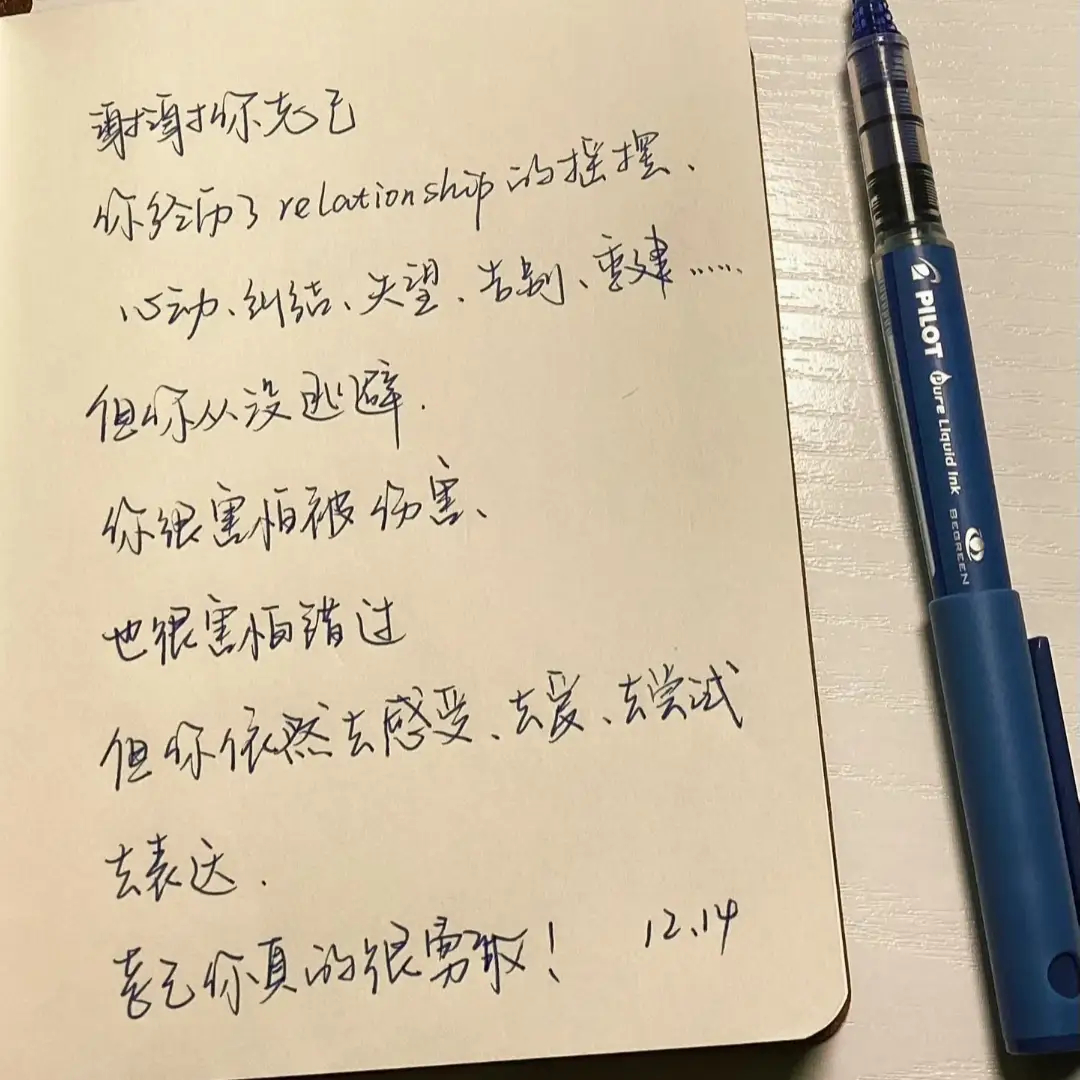 谢谢你
你经历了relationship的摇摆、
心动、纠结、失望、告别、重建……
但你从没逃避.
你很害怕被伤害、
也很害怕错过
但你依然去感受、去爱、去尝试
去表达.
你真的很勇敢！ 12.14
PILOT
Pure Liquid Ink
BEGREEN